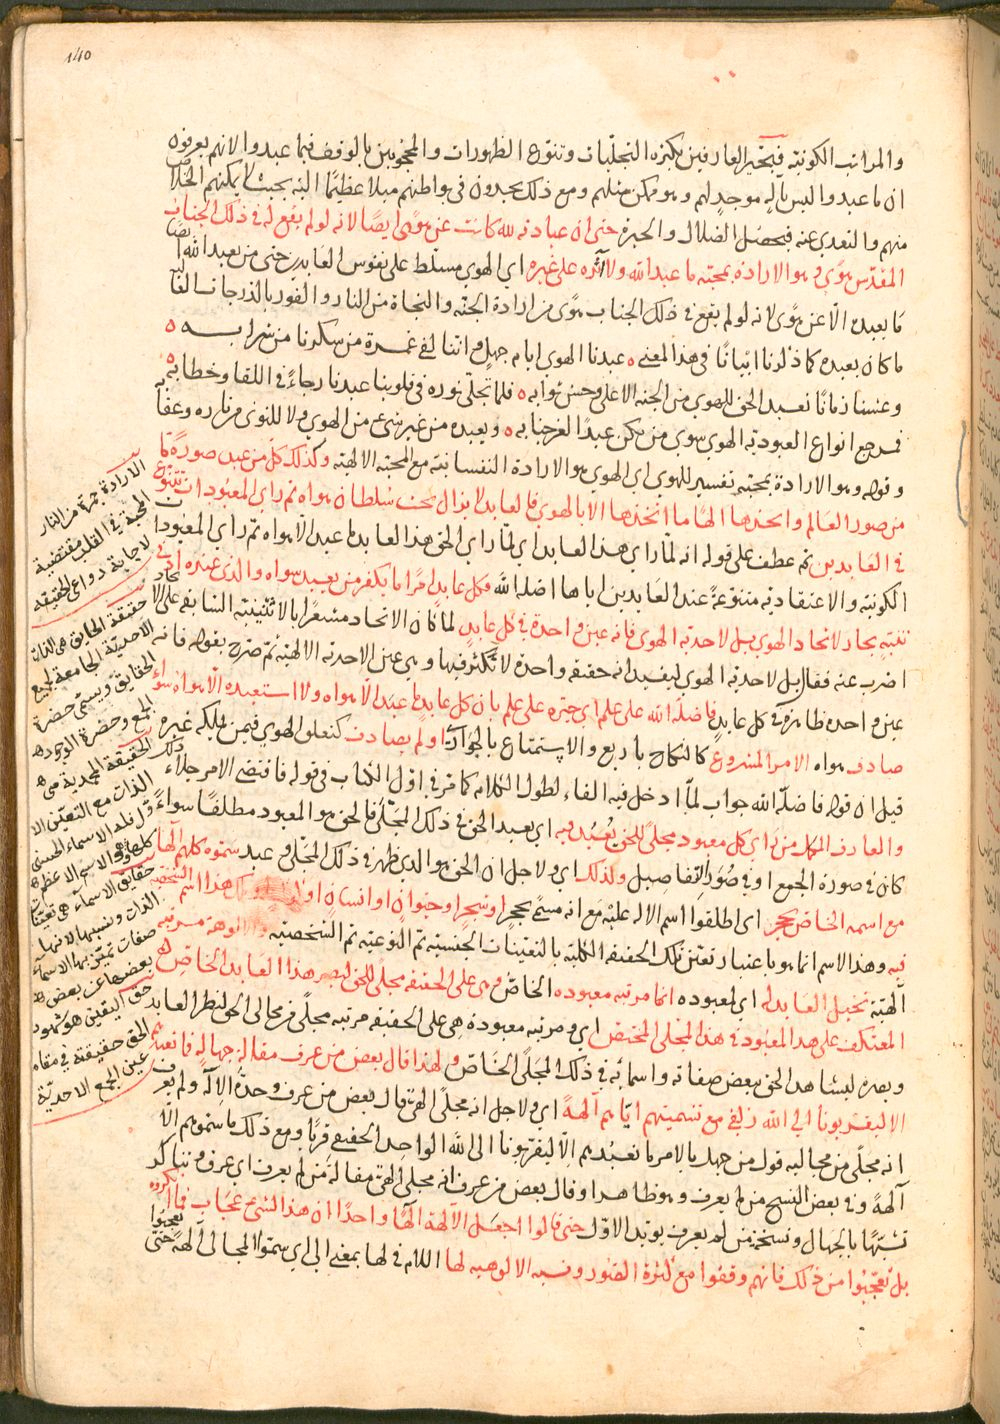 140
والمراتب الكونية فيتحير العارفين بكثرة التجليات وتنوع الظهورات والمحجوبين بالوقوف فيما عبدوا لانهم يعرفون
ان ما عبدوا ليس بآله موجد لهم وهو ممكن مثلهم ومع ذلك يجدون في بواطنهم ميلا عظيما اليه بحيث لا يمكنهم الخلاص
منهم والتعدي عنه فيحصل الضلال والحيرة حتى ان عبادته لله كانت عن هوًى ايضًا لانه لو لم يقع له في ذلك الجناب
المقدس هوًى وهو الارادة بمحبته ما عبد الله ولا آثره على غيره اي الهوى مسلط على نفوس العابدين حتى من يعبد الله ايضا
ما يعبده الا عن هوًى لانه لو لم يقع في ذلك الجناب هوًى من ارادة الجنة والنجاة من النار والفوز بالدرجات العا
ما كان يعبده كما ذكرنا ابياتا في هذا المعنى ه عبدنا الهوى ايام جهل واننا لفي غمرة من سكرنا من شرابه ه
وعشنا زمانًا نعبد الحق للهوى من الجنة الاعلى وحسن ثوابه ه فلما تجلى نوره في قلوبنا عبدنا رجاءً في اللقا وخطابه ه
فمرجع انواع العبودية الهوى سوى من يكن عبدًا لعز جنابه ه ويعبده من غير شيء من الهوى ولا للنوى من ناره وعقابه
وقوله وهو الارادة بمحبته تفسير للهوى اي الهوى هو الارادة النفسانية مع المحبة الالهية وكذلك كل من عبد صورة ما
من صور العالم واتخذها الهًا ما اتخذها الا بالهوى فالعابد لا يزال تحت سلطان هواه ثم راى المعبودات تتنوع
في العابدين ثم عطف على قوله انه لما راى هذا العابد اي لما راى الحق هذا العابد ما عبد الا هواه ثم راى المعبودات
الكونية والاعتقادية متنوعة عند العابدين اياها اضله الله فكل عابد امرًا ما يكفر من يعبد سواه والذي عنده ادنى
تنبه يحار لاتحاد الهوى بل لاحدية الهوى فانه عين واحدة في كل عابد لما كان الاتحاد مشعرًا بالاثنينية السابقة على الاتحاد
اضرب عنه فقال بل لاحدية الهوى ليفيد انه حقيقة واحدة لا تكثر فيها وهي عين الاحدية الالهية ثم صرح بقوله فانه
عين واحدة ظاهرة في كل عابد فاضله الله على علم اي حيره على علم بان كل عابد ما عبد الا هواه ولا استعبده الا هواه سواء
صادف هواه الامر المشروع كالنكاح باربع والاستمتاع بالجوار او لم يصادف كتعلق الهوى فيمن ملكه غيره
قيل ان قوله فاضله الله جواب لما ادخل فيه الفاء لطول الكلام كما مر في اول الكتاب في قوله فاقتضى الامر جلاء ذلك
والعارف المكمل من راى كل معبود مجلًى للحق يعبد فيه اي يعبد الحق في ذلك المجلى فالحق هو المعبود مطلقًا سواءً
كان في صورة الجمع او في صور التفاصيل ولذلك اي ولاجل ان الحق هو الذي ظهر في ذلك المجلى وعبد سموه كلهم الهًا
مع اسمه الخاص بحجر اي اطلقوا اسم الاله عليه مع انه مسمًى بحجر او شجر او حيوان او انسان او هذا اسم الشخصية
فيه وهذا الاسم انما هو باعتبار تعين تلك الحقيقة الكلية بالتعينات الجنسية ثم النوعية ثم الشخصية والالوهة مرتبة
آلهية تخيل العابد له اي لمعبوده انما مرتبه معبوده الخاص وهي على الحقيقة مجلى للحق لبصر هذا العابد الخاص
المعتكف على هذا المعبود في هذا المجلى المختص اي ومرتبة معبودة هي على الحقيقة مرتبه مجلًى من مجالي الحق لنظر العابد
وبصره ليشاهد الحق ببعض صفاته واسمائه في ذلك المجلى الخاص ولهذا قال بعض من عرف مقالة جهالة ما نعبدهم
الا ليقربونا الى الله زلفى مع تسميتهم اياهم آلهةً اي ولاجل انه مجلًى الهي قال بعض من عرف وحدة الاله ولم يعرف
انه مجلًى من مجاليه قول من جهل بالامر ما نعبدهم الا ليقربونا الى الله الواحد الحقيقي قربًا ومع ذلك ما سموهم الا
آلهةً وفي بعض النسخ من لم يعرف وهو ظاهر وقال بعض من عرف انه مجلى الهي مقالة من لم يعرف اي عرف وتناكر
تشبهًا بالجهال ونسخة من لم يعرف يويد الاول حتى قالوا اجعل الآلهة الهًا واحدًا ان هذا لشيء عجاب فما انكروه
بل تعجبوا من ذلك فانهم وقفوا مع كثرة الصور ونسبة الالوهية لها اللام في لها بمعنى الى اي سموا المجالي آلهة حتى تعجبوا
الارادة جمرة من النار
المحبة في القلب مقتضية
لاجابة دواعي الحقيقة
حقيقة الحقايق هي الذات
الاحدية الجامعة لجميع
الحقايق ويسمى حضرة
الجمع وحضرة الوجود
الحقيقة المحمدية هي
الذات مع التعين الا
ول فله الاسماء الحسنى
كلها وهو الاسم الاعظم
حقايق الاسماء هي تعينا
الذات ونسبها لانها
صفات تميز بها الاسماء
بعضها عن بعض
حق اليقين هو شهود
الحق حقيقته في مقام
عين الجمع الاحدية